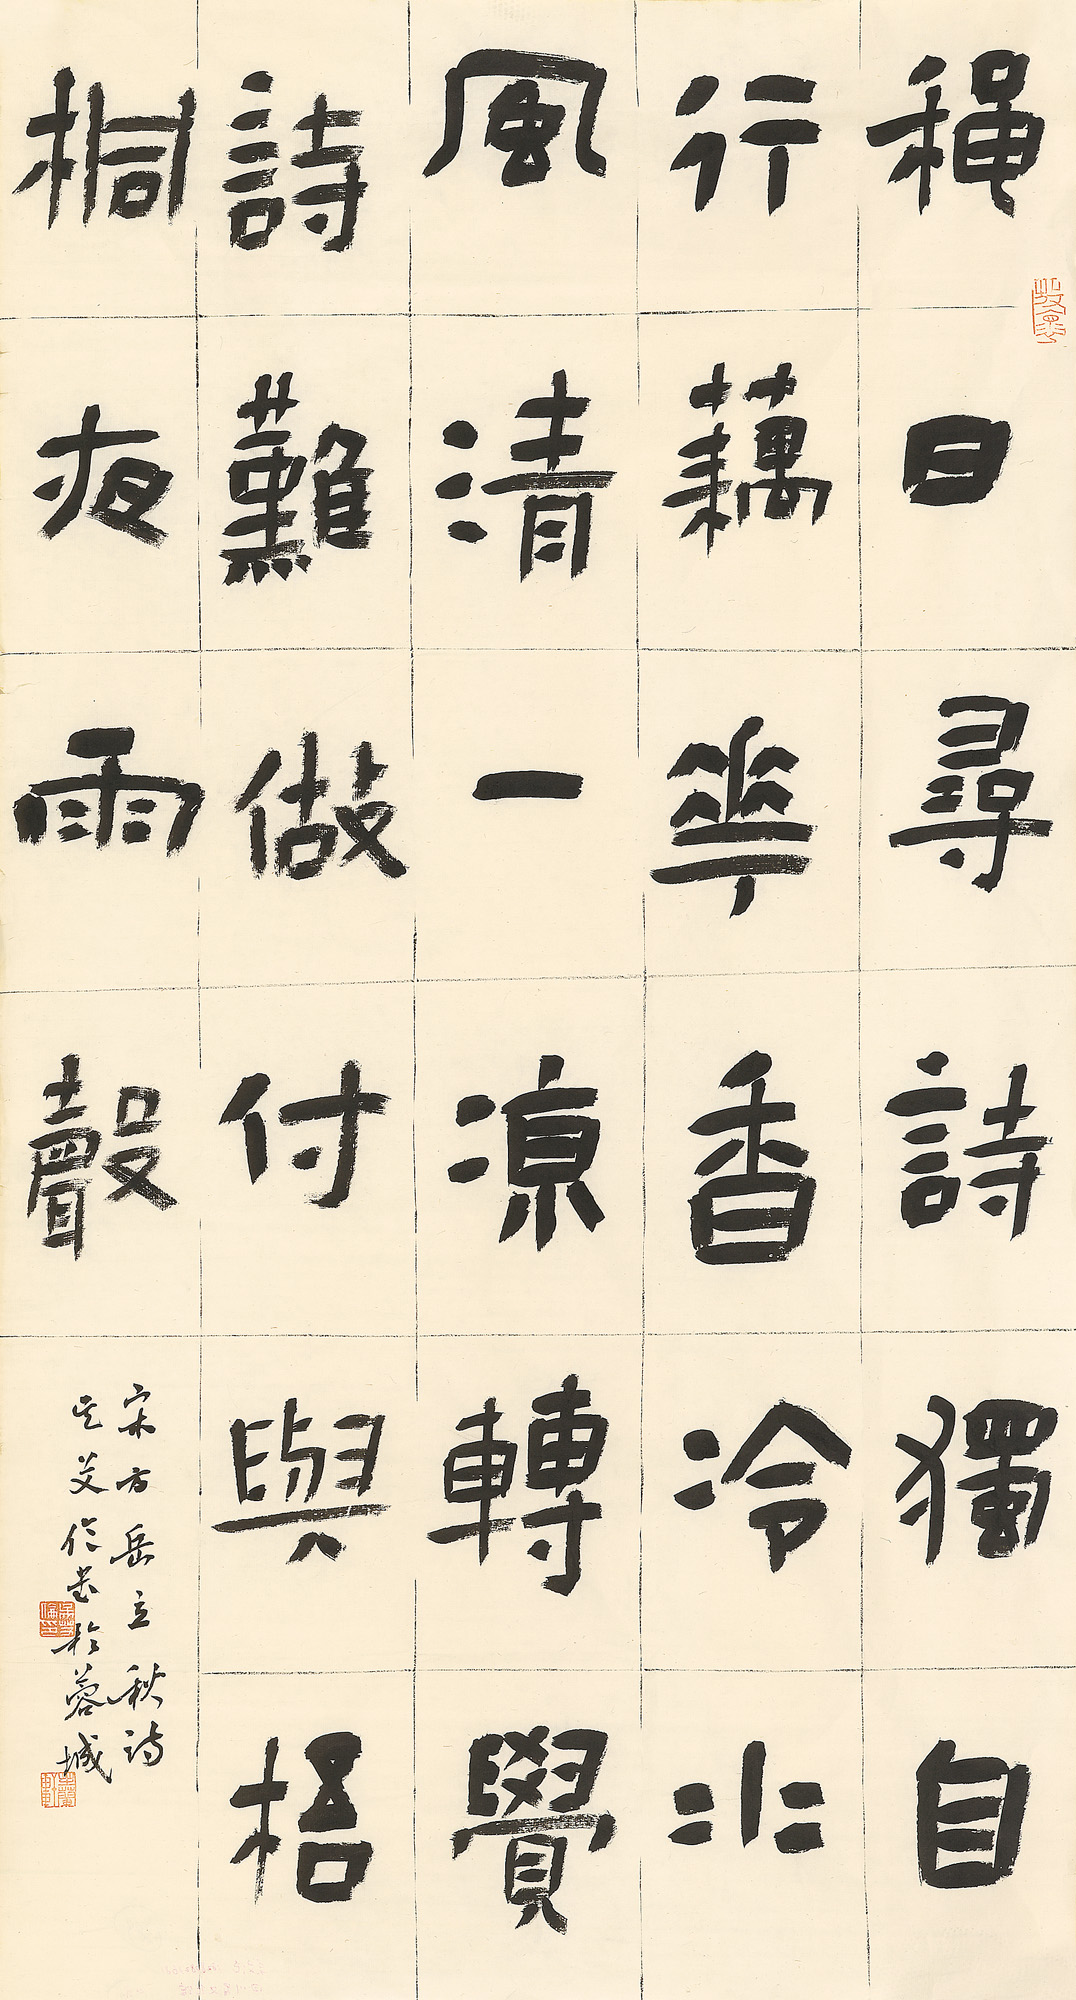 穐日尋詩獨自
行藕華香冷水
風清一凉轉覺
詩難做付與梧
桐夜雨聲
宋方岳立秋诗
吴艾伦书於蓉城